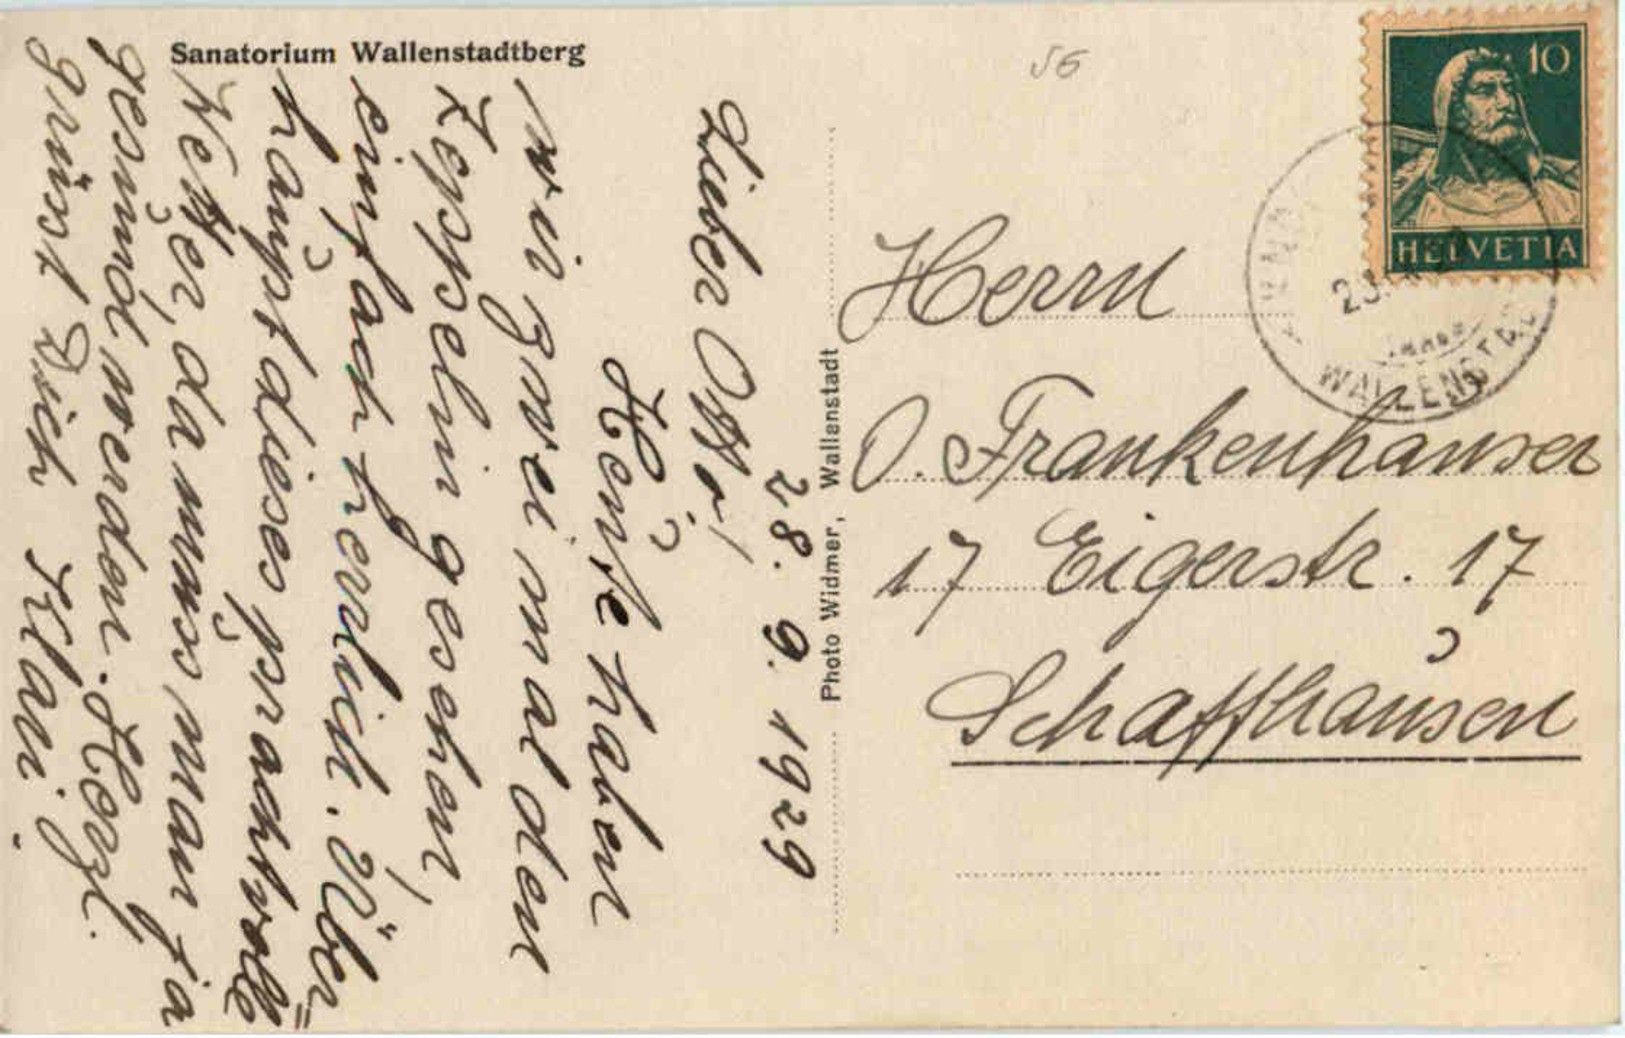 Sanatorium Wallenstadtberg
28. 9. 1929
Lieber Otto!
Heute haben
wir zwei mal den
Zeppelin gesehen,
einfach herrlich. Über=
haupt dieses prachtvolle
Wetter, da muss man ja
gesund werden. Herzl.
grüsst Dich Klari.
Photo Widmer, Wallenstadt
56
10
HELVETIA
WALLENSTAD
Herrn
O. Frankenhauser
17 Eigerstr. 17
Schaffhausen